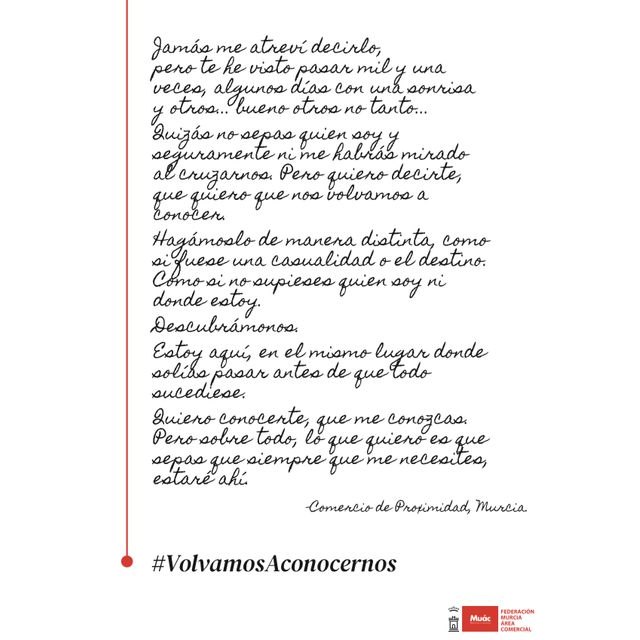 Jamás me atreví decirlo,
pero te he visto pasar mil y una
veces, algunos días con una sonrisa
y otros... bueno otros no tanto...
Quizás no sepas quien soy y
seguramente ni me habrás mirado
al cruzarnos. Pero quiero decirte,
que quiero que nos volvamos a
conocer.
Hagámoslo de manera distinta, como
si fuese una casualidad o el destino.
Como si no supieses quien soy ni
donde estoy.
Descubrámonos.
Estoy aquí, en el mismo lugar donde
solías pasar antes de que todo
sucediese.
Quiero conocerte, que me conozcas.
Pero sobre todo, lo que quiero es que
sepas que siempre que me necesites,
estaré ahí.
-Comercio de Proximidad, Murcia
#VolvamosAconocernos
Muác
FEDERACIÓN
MURCIA
ÁREA
COMERCIAL